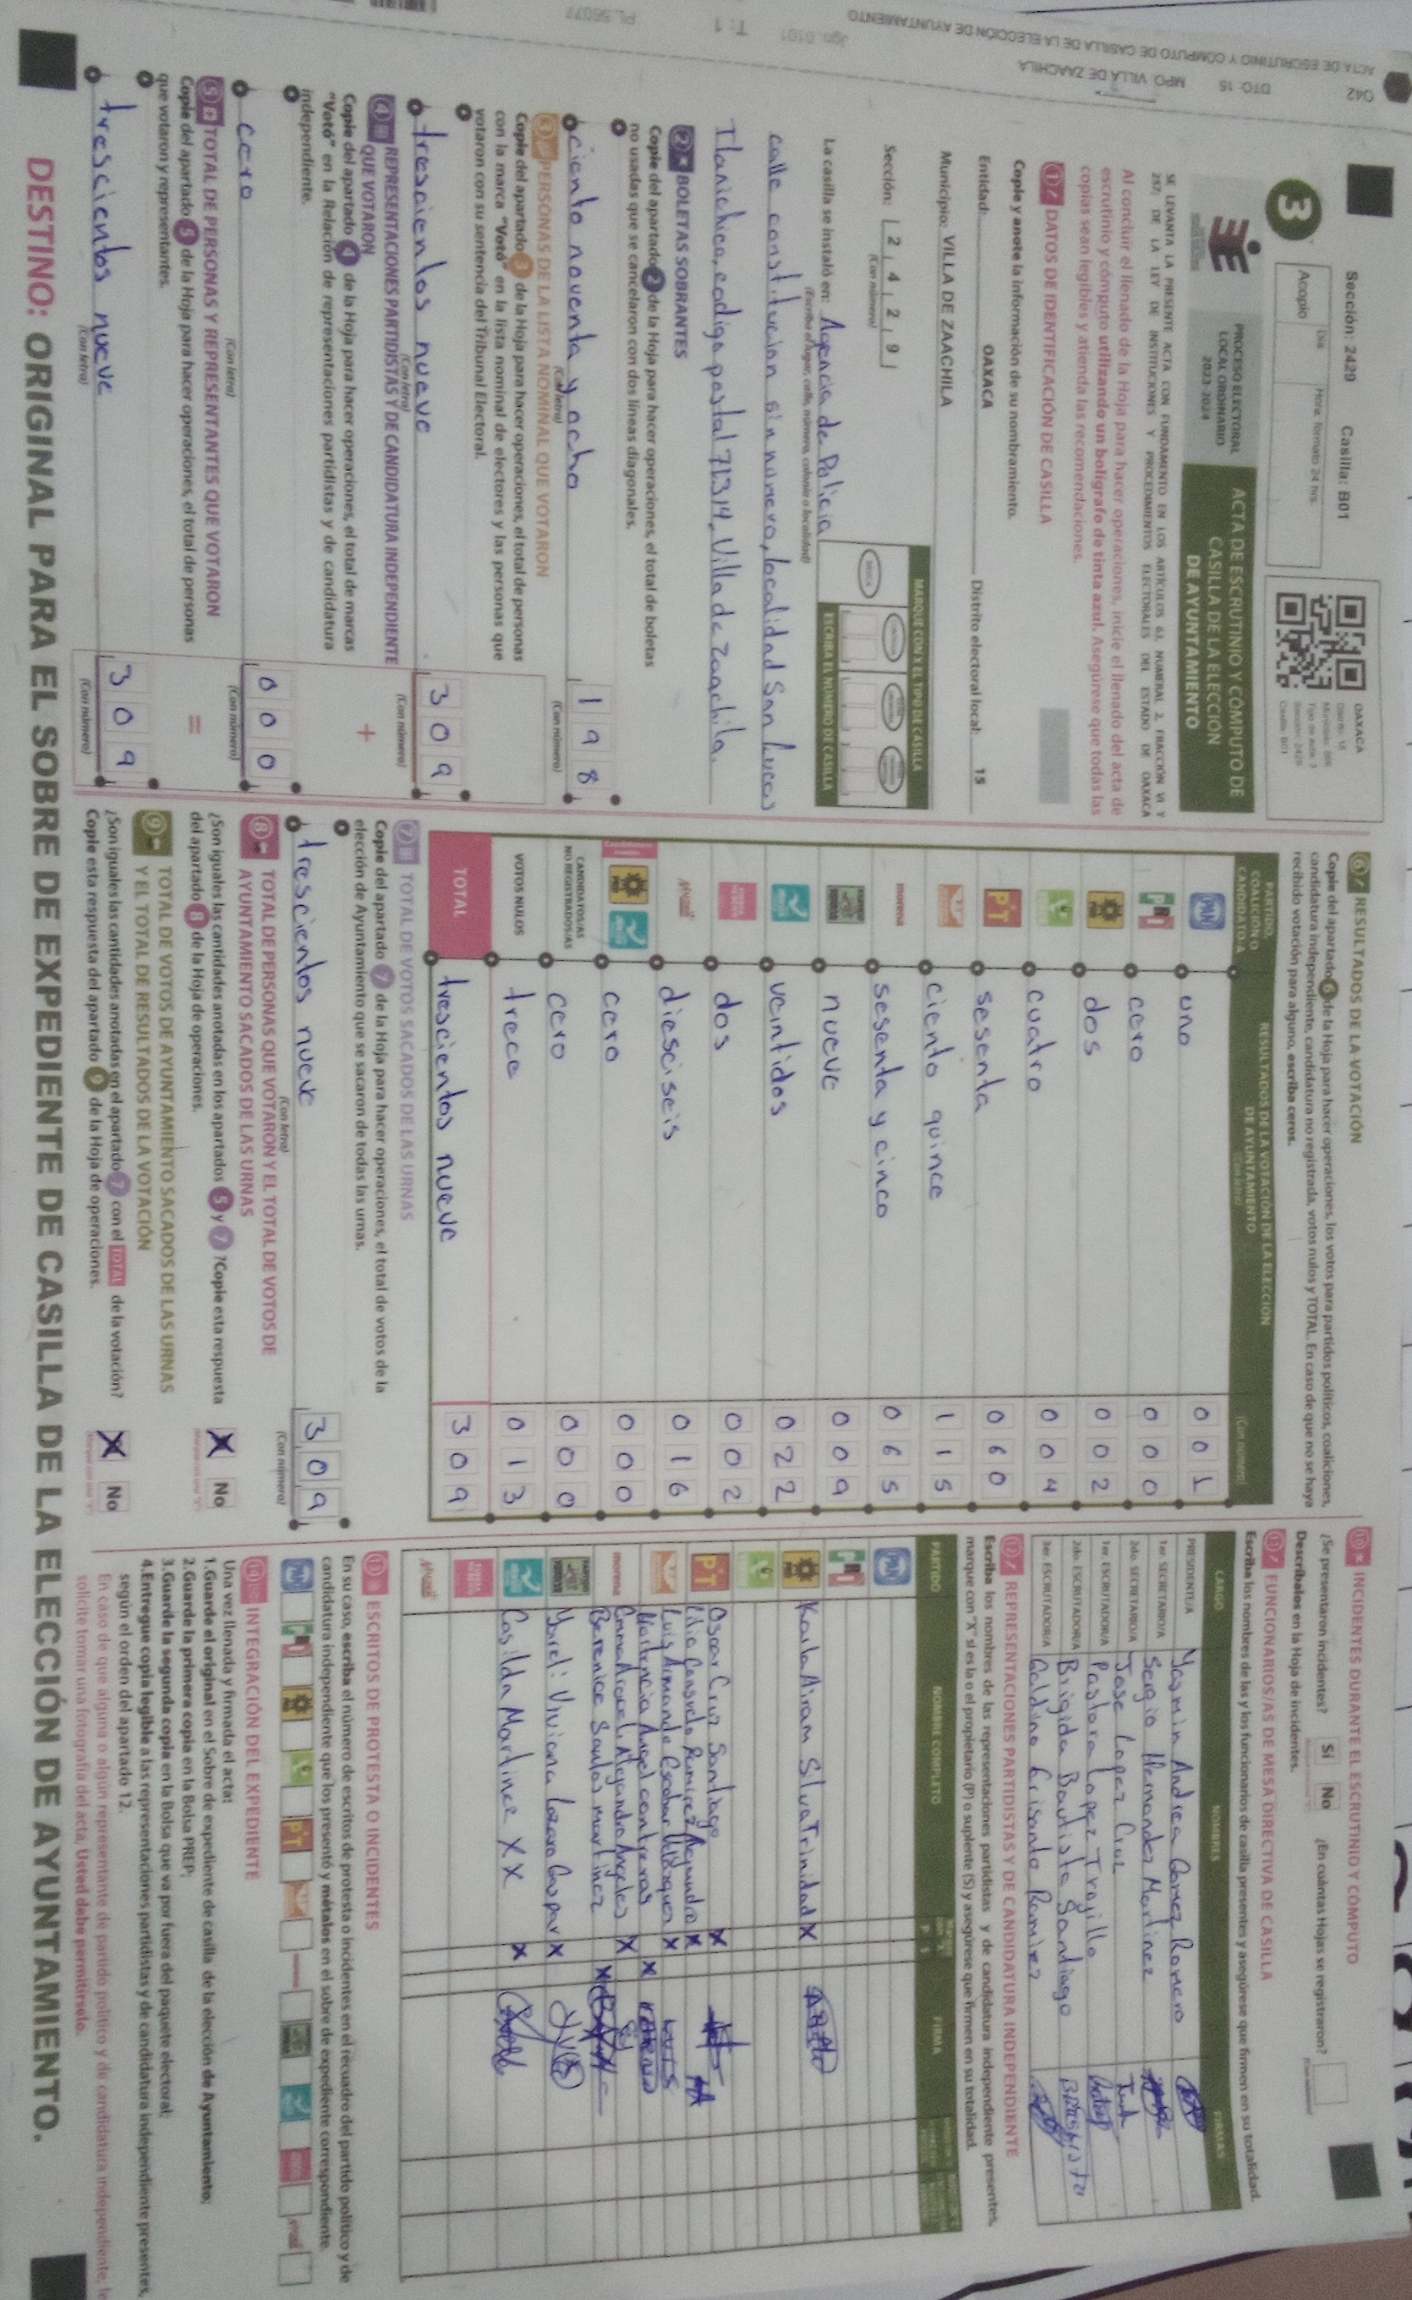 042 DTO. 15 MPO. VILLA DE ZAACHILA
ACTA DE ESCRUTINIO Y COMPUTO DE CASILLA DE LA ELECCION DE AYUNTAMIENTO
T: 1
Sección: 2429 Casilla: B01
OAXACA
3
Acopio
Día
Hora, formato 24 hrs.
PROCESO ELECTORAL
LOCAL ORDINARIO
2023-2024
ACTA DE ESCRUTINIO Y CÓMPUTO DE
CASILLA DE LA ELECCIÓN
DE AYUNTAMIENTO
SE LEVANTA LA PRESENTE ACTA CON FUNDAMENTO EN LOS ARTÍCULOS 63, NUMERAL 2, FRACCIÓN VI Y
257; DE LA LEY DE INSTITUCIONES Y PROCEDIMIENTOS ELECTORALES DEL ESTADO DE OAXACA
Al concluir el llenado de la Hoja para hacer operaciones, inicie el llenado del acta de
escrutinio y cómputo utilizando un bolígrafo de tinta azul. Asegúrese que todas las
copias sean legibles y atienda las recomendaciones.
1 DATOS DE IDENTIFICACIÓN DE CASILLA
Copie y anote la información de su nombramiento.
Entidad: OAXACA Distrito electoral local: 15
Municipio: VILLA DE ZAACHILA
Sección: 2 4 2 9
(Con número)
MARQUE CON X EL TIPO DE CASILLA
ESCRIBA EL NÚMERO DE CASILLA
La casilla se instaló en: Agencia de Policia
(Escriba el lugar, calle, número, colonia o localidad)
calle constitucion sin numero, localidad San Lucas
Tlanichico, codigo postal 71314, Villa de Zaachila.
2 BOLETAS SOBRANTES
Copie del apartado 2 de la Hoja para hacer operaciones, el total de boletas
no usadas que se cancelaron con dos líneas diagonales.
ciento noventa y ocho 1 9 8
(Con letra) (Con número)
3 PERSONAS DE LA LISTA NOMINAL QUE VOTARON
Copie del apartado 3 de la Hoja para hacer operaciones, el total de personas
con la marca "Votó" en la lista nominal de electores y las personas que
votaron con su sentencia del Tribunal Electoral.
trescientos nueve 3 0 9
(Con letra) (Con número)
4 REPRESENTACIONES PARTIDISTAS Y DE CANDIDATURA INDEPENDIENTE
QUE VOTARON
+
Copie del apartado 4 de la Hoja para hacer operaciones, el total de marcas
"Votó" en la Relación de representaciones partidistas y de candidatura
independiente.
cero 0 0 0
(Con letra) (Con número)
5 TOTAL DE PERSONAS Y REPRESENTANTES QUE VOTARON
=
Copie del apartado 5 de la Hoja para hacer operaciones, el total de personas
que votaron y representantes.
trescientos nueve 3 0 9
(Con letra) (Con número)
6 RESULTADOS DE LA VOTACIÓN
Copie del apartado 6 de la Hoja para hacer operaciones, los votos para partidos políticos, coaliciones,
candidatura independiente, candidatura no registrada, votos nulos y TOTAL. En caso de que no se haya
recibido votación para alguno, escriba ceros.
PARTIDO, COALICIÓN O CANDIDATO/A
RESULTADOS DE LA VOTACIÓN DE LA ELECCIÓN DE AYUNTAMIENTO
(Con letra) (Con número)
PAN uno 0 0 1
PRI cero 0 0 0
PRD dos 0 0 2
cuatro 0 0 4
PT sesenta 0 6 0
ciento quince 1 1 5
morena sesenta y cinco 0 6 5
nueve 0 0 9
veintidos 0 2 2
dos 0 0 2
diesciseis 0 1 6
cero 0 0 0
CANDIDATOS/AS NO REGISTRADOS/AS cero 0 0 0
VOTOS NULOS trece 0 1 3
TOTAL trescientos nueve 3 0 9
7 TOTAL DE VOTOS SACADOS DE LAS URNAS
Copie del apartado 7 de la Hoja para hacer operaciones, el total de votos de la
elección de Ayuntamiento que se sacaron de todas las urnas.
trescientos nueve 3 0 9
(Con letra) (Con número)
8 TOTAL DE PERSONAS QUE VOTARON Y EL TOTAL DE VOTOS DE
AYUNTAMIENTO SACADOS DE LAS URNAS
¿Son iguales las cantidades anotadas en los apartados 5 y 7 ? Copie esta respuesta
del apartado 8 de la Hoja de operaciones.
X No
9 TOTAL DE VOTOS DE AYUNTAMIENTO SACADOS DE LAS URNAS
Y EL TOTAL DE RESULTADOS DE LA VOTACIÓN
¿Son iguales las cantidades anotadas en el apartado 7 con el TOTAL de la votación?
Copie esta respuesta del apartado 9 de la Hoja de operaciones.
X No
10 INCIDENTES DURANTE EL ESCRUTINIO Y CÓMPUTO
¿Se presentaron incidentes? Sí No ¿En cuántas Hojas se registraron?
Descríbalos en la Hoja de incidentes.
11 FUNCIONARIOS/AS DE MESA DIRECTIVA DE CASILLA
Escriba los nombres de las y los funcionarios de casilla presentes y asegúrese que firmen en su totalidad.
CARGO NOMBRES FIRMAS
PRESIDENTE/A Yasmin Andrea Gomez Romero
1er. SECRETARIO/A Sergio Hernandez Martinez
2do. SECRETARIO/A Jose Lopez Cruz
1er. ESCRUTADOR/A Pastora Lopez Trujillo
2do. ESCRUTADOR/A Brigida Bautista Santiago
3er. ESCRUTADOR/A Galdino Crisanto Ramirez
12 REPRESENTACIONES PARTIDISTAS Y DE CANDIDATURA INDEPENDIENTE
Escriba los nombres de las representaciones partidistas y de candidatura independiente presentes,
marque con "X" si es la o el propietario (P) o suplente (S) y asegúrese que firmen en su totalidad.
PARTIDO NOMBRE COMPLETO FIRMA
PAN
PRI
PRD Karla Airam Silva Trinidad X
PT Oscar Cruz Santiago X
Lilia Consuelo Ramirez X
Luis Armando Escobar X
Hortencia Angel contreras X
morena Emma Araceli Alejandro Angeles X
Berenice Santos martinez X
Yareli Viviana Lazaro Gaspar X
Casilda Martinez XX X
13 ESCRITOS DE PROTESTA O INCIDENTES
En su caso, escriba el número de escritos de protesta o incidentes en el recuadro del partido político y de
candidatura independiente que los presentó y métalos en el sobre de expediente correspondiente.
14 INTEGRACIÓN DEL EXPEDIENTE
Una vez llenada y firmada el acta:
1. Guarde el original en el Sobre de expediente de casilla de la elección de Ayuntamiento;
2. Guarde la primera copia en la Bolsa PREP;
3. Guarde la segunda copia en la Bolsa que va por fuera del paquete electoral;
4. Entregue copia legible a las representaciones partidistas y de candidatura independiente presentes,
según el orden del apartado 12.
En caso de que alguna o algún representante de partido político y de candidatura independiente, le
solicite tomar una fotografía del acta, Usted debe permitírselo.
DESTINO: ORIGINAL PARA EL SOBRE DE EXPEDIENTE DE CASILLA DE LA ELECCIÓN DE AYUNTAMIENTO.